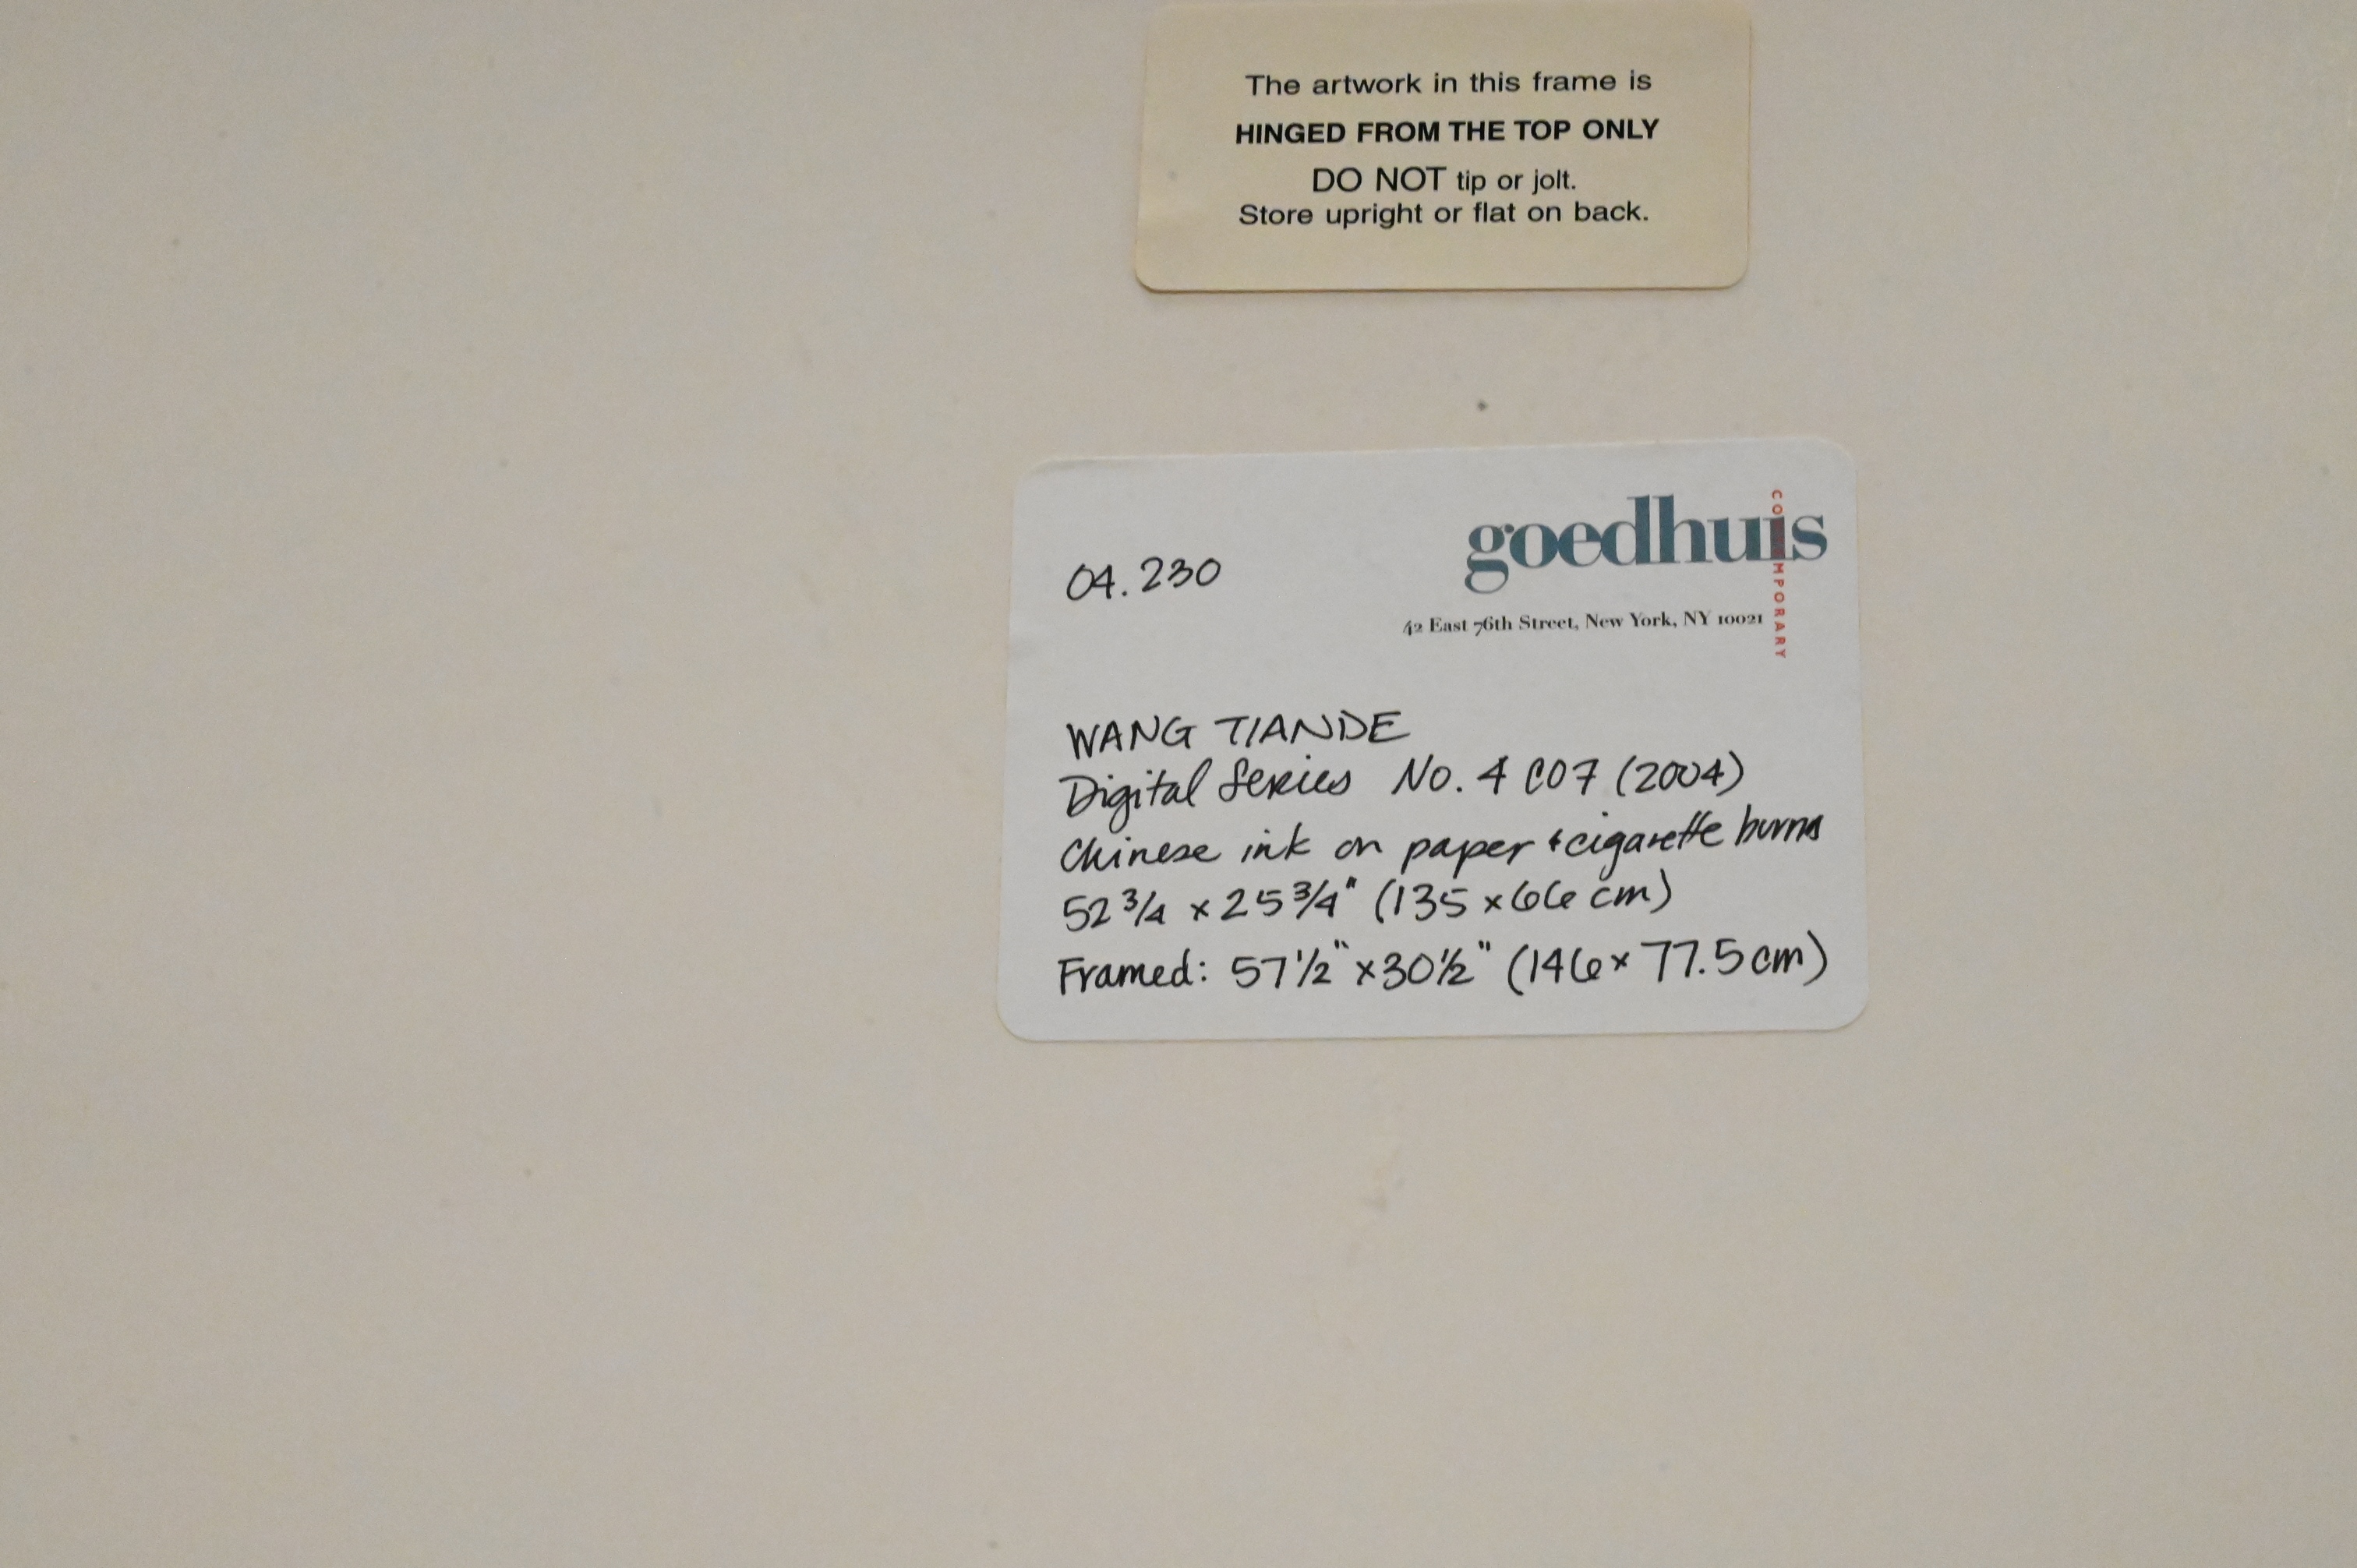 The artwork in this frame is
HINGED FROM THE TOP ONLY
DO NOT tip or jolt.
Store upright or flat on back.
goedhuis
CONTEMPORARY
04.230
42 East 76th Street, New York, NY 10021
WANG TIANDE
Digital Series No. 4 C07 (2004)
Chinese ink on paper + cigarette burns
52 3/4 x 25 3/4" (135 x 66 cm)
Framed: 57 1/2" x 30 1/2" (146 x 77.5 cm)